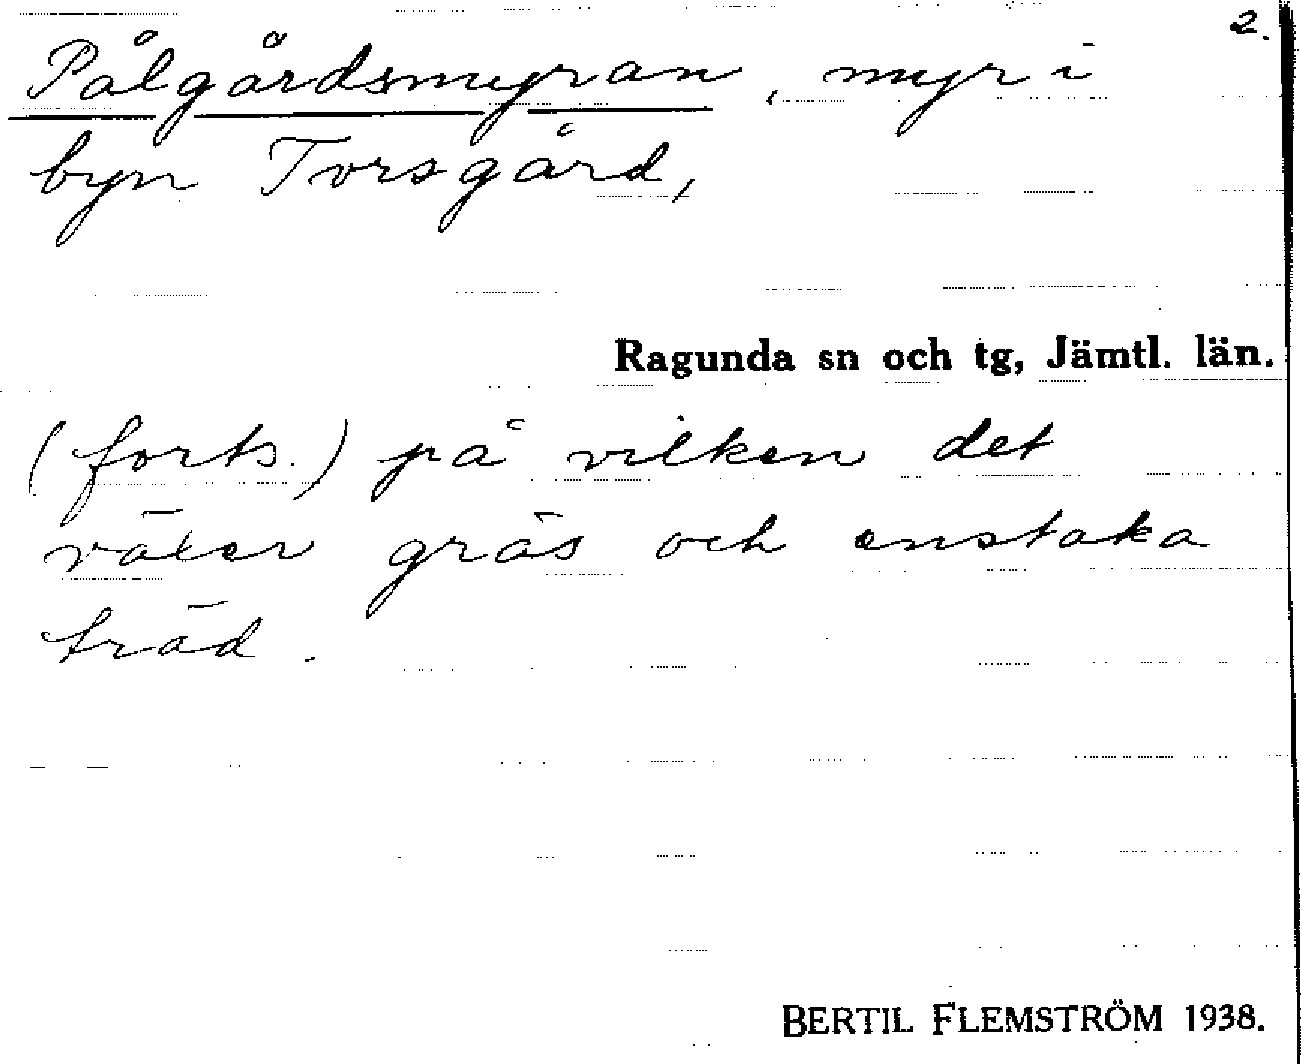 2.
Pålgårdsmyran, myr i
byn Torsgård,
Ragunda sn och tg, Jämtl. län.
(forts.) på vilken det
växer gräs och enstaka
träd.
BERTIL FLEMSTRÖM 1938.